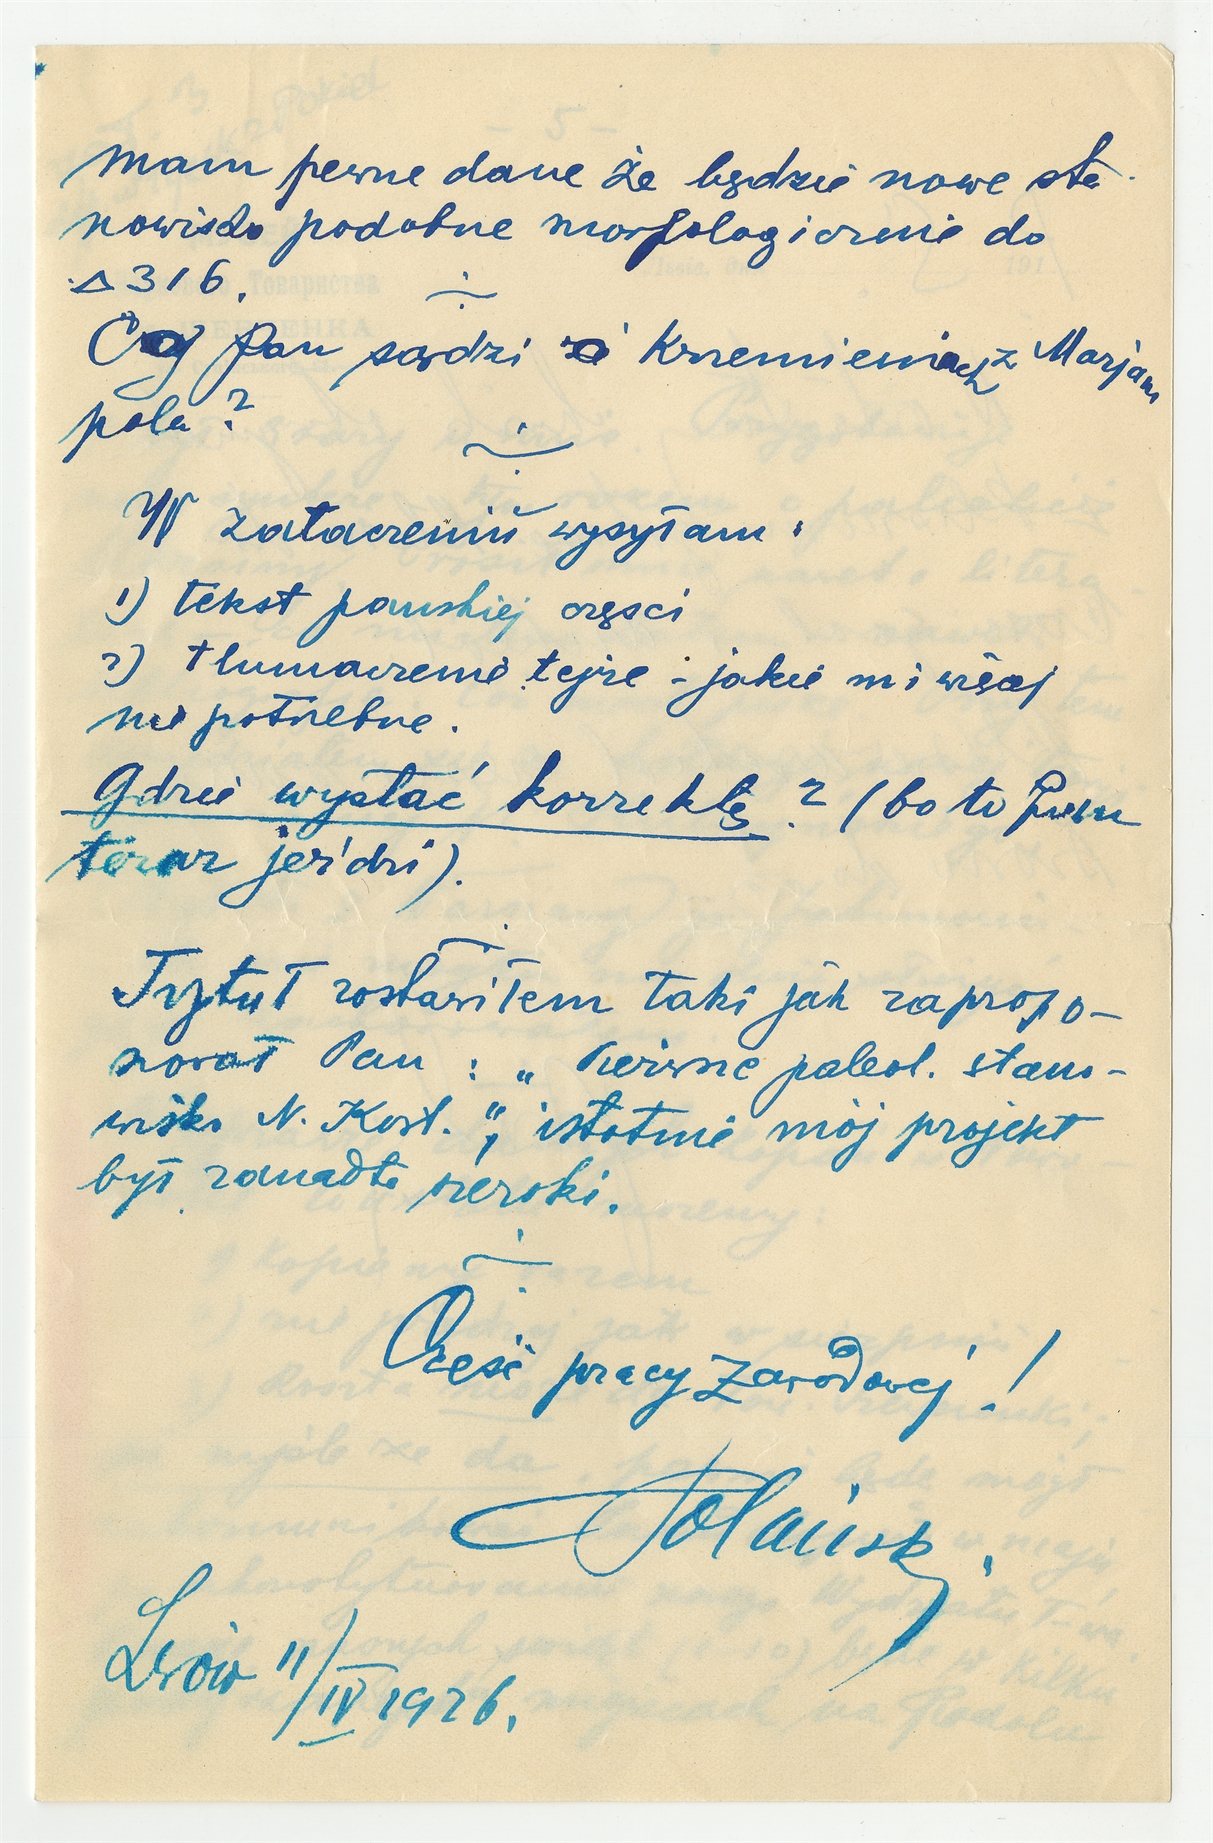 mam pewne dane że będzie nowe sta
nowisko podobne morfologicznie do
△ 316.
Co Pan sądzi o krzemieniach z Marjam
pola?
W załączeniu wysyłam:
1) tekst pańskiej części
2) tłumaczenie tejże - jakie mi więcej
nie potrzebne.
Gdzie wysłać korrektę? (bo to Pan
teraz jeździ).
Tytuł zostawiłem taki jak zapropo-
nował Pan: „Pierwsze paleol. stano-
wisko N. Kost.", istotnie mój projekt
był zanadto szeroki.
Cześć pracy zawodowej!
Polański.
Lwów 11/IV 1926.